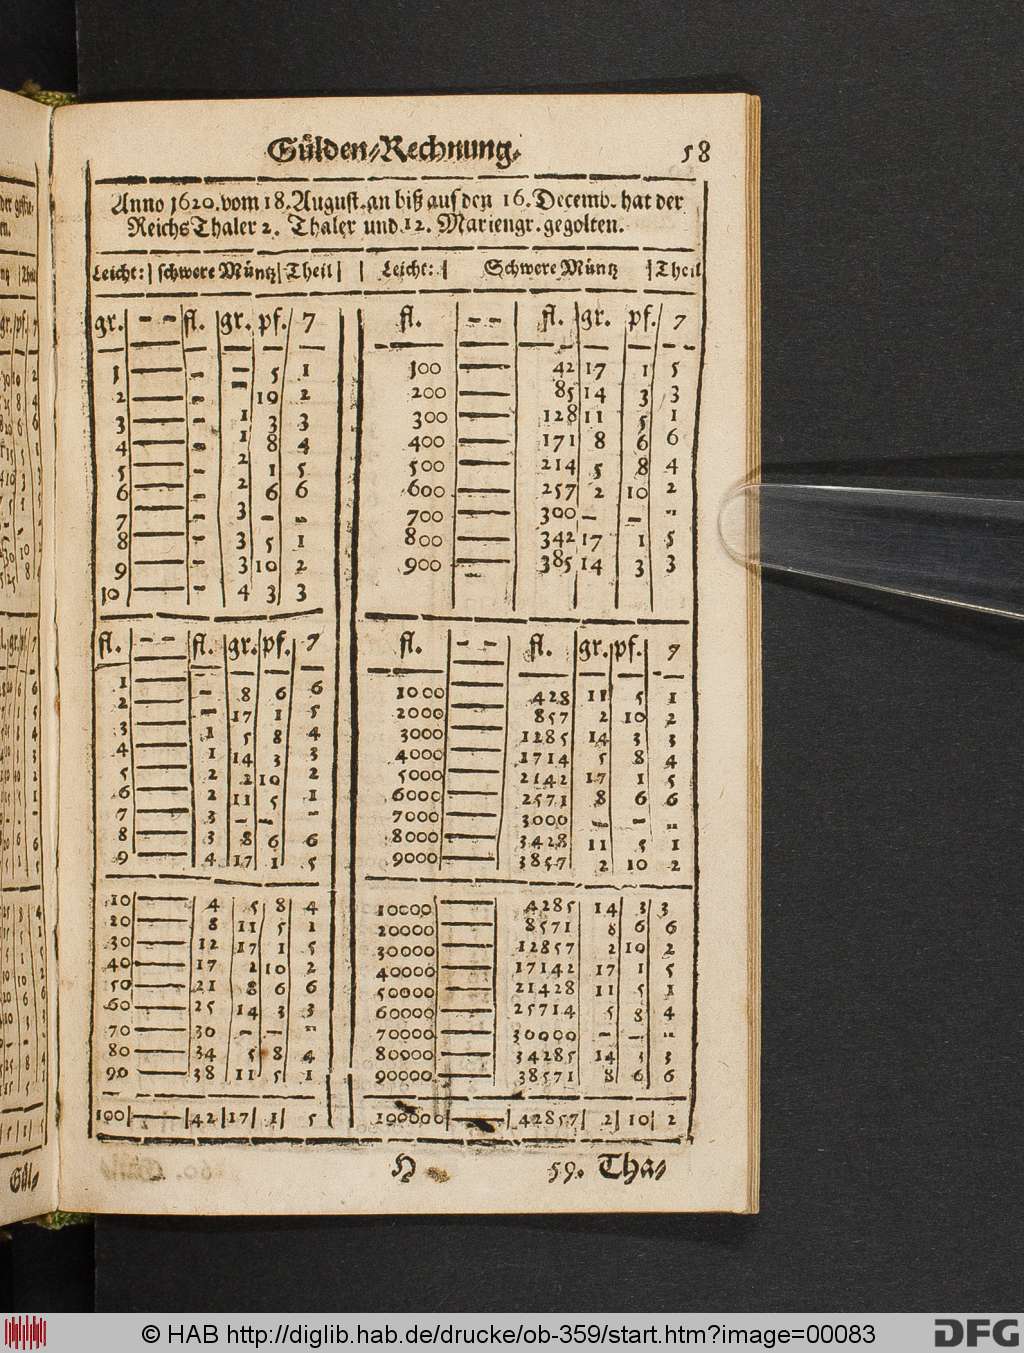 Gůlden-Rechnung. 58
Anno 1620. vom 18. August. an biß auf den 16. Decemb. hat der
ReichsThaler 2. Thaler und 12. Mariengr. gegolten.
Leicht: | schwere Můntz | Theil | | Leicht: | Schwere Můntz | Theil
gr. | – – | fl. | gr. | pf. | 7
1 — – – 5 1
2 — – – 10 2
3 — – 1 3 3
4 — – 1 8 4
5 — – 2 1 5
6 — – 2 6 6
7 — – 3 – –
8 — – 3 5 1
9 — – 3 10 2
10 — – 4 3 3
fl. | – – | fl. | gr. | pf. | 7
1 — – 8 6 6
2 — – 17 1 5
3 — 1 5 8 4
4 — 1 14 3 3
5 — 2 2 10 2
6 — 2 11 5 1
7 — 3 – – –
8 — 3 8 6 6
9 — 4 17 1 5
10 — 4 5 8 4
20 — 8 11 5 1
30 — 12 17 1 5
40 — 17 2 10 2
50 — 21 8 6 6
60 — 25 14 3 3
70 — 30 – – –
80 — 34 5 8 4
90 — 38 11 5 1
100 — 42 17 1 5
fl. | – – | fl. | gr. | pf. | 7
100 — 42 17 1 5
200 — 85 14 3 3
300 — 128 11 5 1
400 — 171 8 6 6
500 — 214 5 8 4
600 — 257 2 10 2
700 — 300 – – –
800 — 342 17 1 5
900 — 385 14 3 3
fl. | – – | fl. | gr. | pf. | 7
1000 — 428 11 5 1
2000 — 857 2 10 2
3000 — 1285 14 3 3
4000 — 1714 5 8 4
5000 — 2142 17 1 5
6000 — 2571 8 6 6
7000 — 3000 – – –
8000 — 3428 11 5 1
9000 — 3857 2 10 2
10000 — 4285 14 3 3
20000 — 8571 8 6 6
30000 — 12857 2 10 2
40000 — 17142 17 1 5
50000 — 21428 11 5 1
60000 — 25714 5 8 4
70000 — 30000 – – –
80000 — 34285 14 3 3
90000 — 38571 8 6 6
100000 — 42857 2 10 2
H 59. Tha-
Gůl-
© HAB http://diglib.hab.de/drucke/ob-359/start.htm?image=00083
DFG